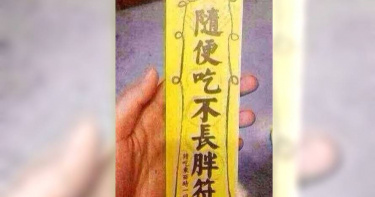 隨便吃不長胖符